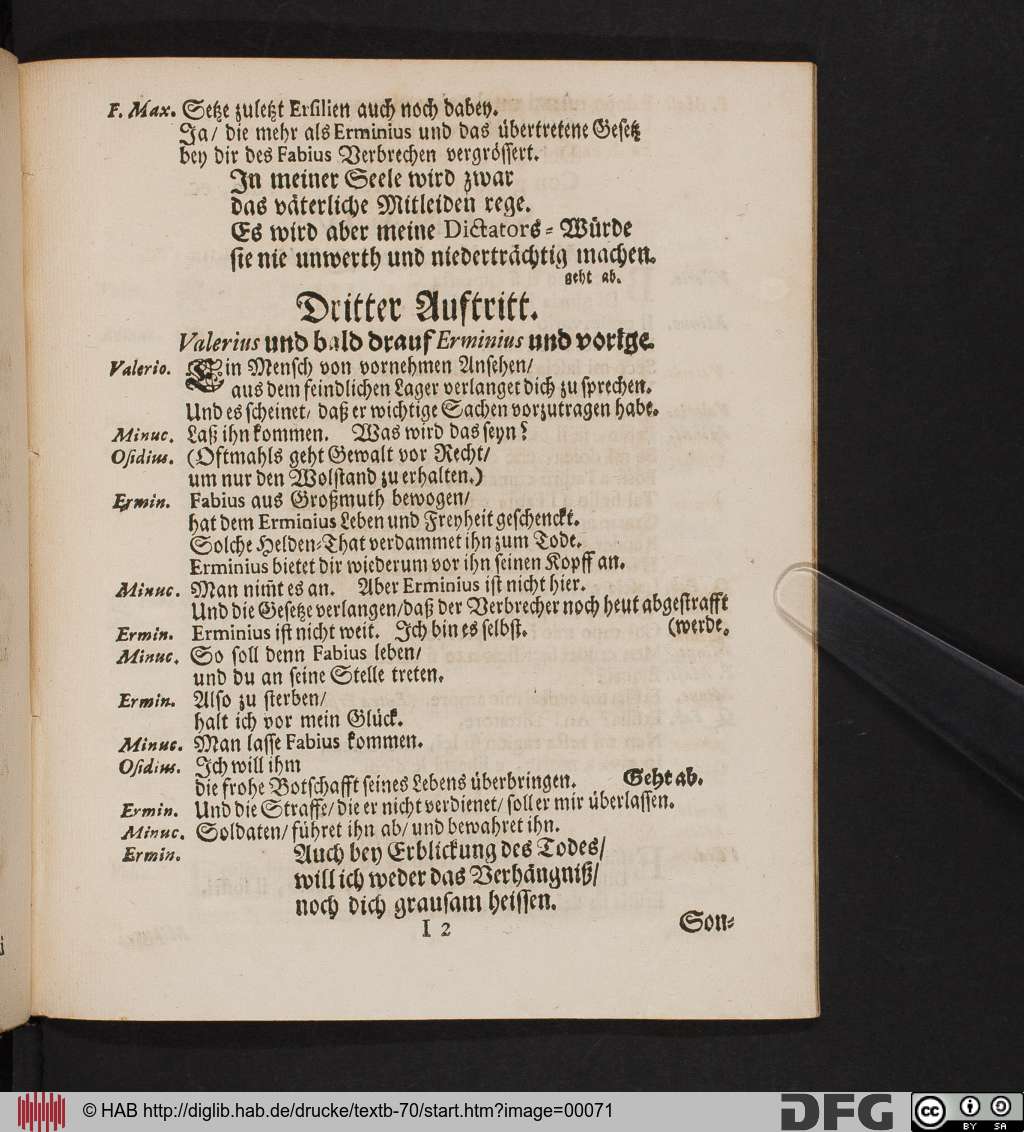 F. Max. Setze zuletzt Ersilien auch noch dabey.
Ja/ die mehr als Erminius und das übertretene Gesetz
bey dir des Fabius Verbrechen vergrössert.
In meiner Seele wird zwar
das väterliche Mitleiden rege.
Es wird aber meine Dictators-Würde
sie nie unwerth und niederträchtig machen.
geht ab.
Dritter Auftritt.
Valerius und bald drauf Erminius und vorige.
Valerio. Ein Mensch von vornehmen Ansehen/
aus dem feindlichen Lager verlanget dich zu sprechen.
Und es scheinet/ daß er wichtige Sachen vorzutragen habe.
Minuc. Laß ihn kommen. Was wird das seyn?
Osidius. (Oftmahls geht Gewalt vor Recht/
um nur den Wolstand zu erhalten.)
Ermin. Fabius aus Großmuth bewogen/
hat dem Erminius Leben und Freyheit geschenckt.
Solche Helden-That verdammet ihn zum Tode.
Erminius bietet dir wiederum vor ihn seinen Kopff an.
Minuc. Man nim̃t es an. Aber Erminius ist nicht hier.
Und die Gesetze verlangen/daß der Verbrecher noch heut abgestrafft
Ermin. Erminius ist nicht weit. Ich bin es selbst. (werde.
Minuc. So soll denn Fabius leben/
und du an seine Stelle treten.
Ermin. Also zu sterben/
halt ich vor mein Glück.
Minuc. Man lasse Fabius kommen.
Osidius. Ich will ihm
die frohe Botschafft seines Lebens überbringen. Geht ab.
Ermin. Und die Straffe/ die er nicht verdienet/ soll er mir überlassen.
Minuc. Soldaten/ führet ihn ab/ und bewahret ihn.
Ermin. Auch bey Erblickung des Todes/
will ich weder das Verhängniß/
noch dich grausam heissen.
I 2 Son-
© HAB http://diglib.hab.de/drucke/textb-70/start.htm?image=00071
DFG
cc BY SA